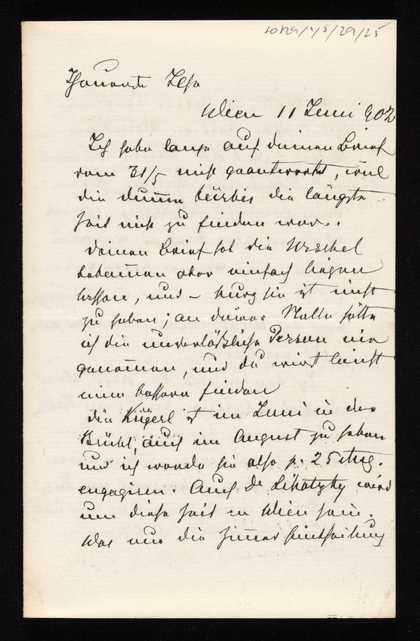 Theuerste Ilse
Wien 11 Juni 902
Ich habe lange auf deinen Brief
vom 31/5 nicht geantwortet, weil
die dumme Kürbis die längste
Zeit nicht zu finden war.
Deinen Brief hat die
aber einfach liegen
lassen, und – kurz sie ist nicht
zu haben; an deiner Stelle hätte
ich die unverläßliche Person nie
genommen, und du wirst leicht
eine bessere finden
die Kügerl ist im Juni in der
Brühl, auch im August zu haben
und ich werde sie also p. 25 Aug.
engagiren. Auch Dr wird
um diese Zeit in Wien sein.
Was nun die Zimmer Eintheilung